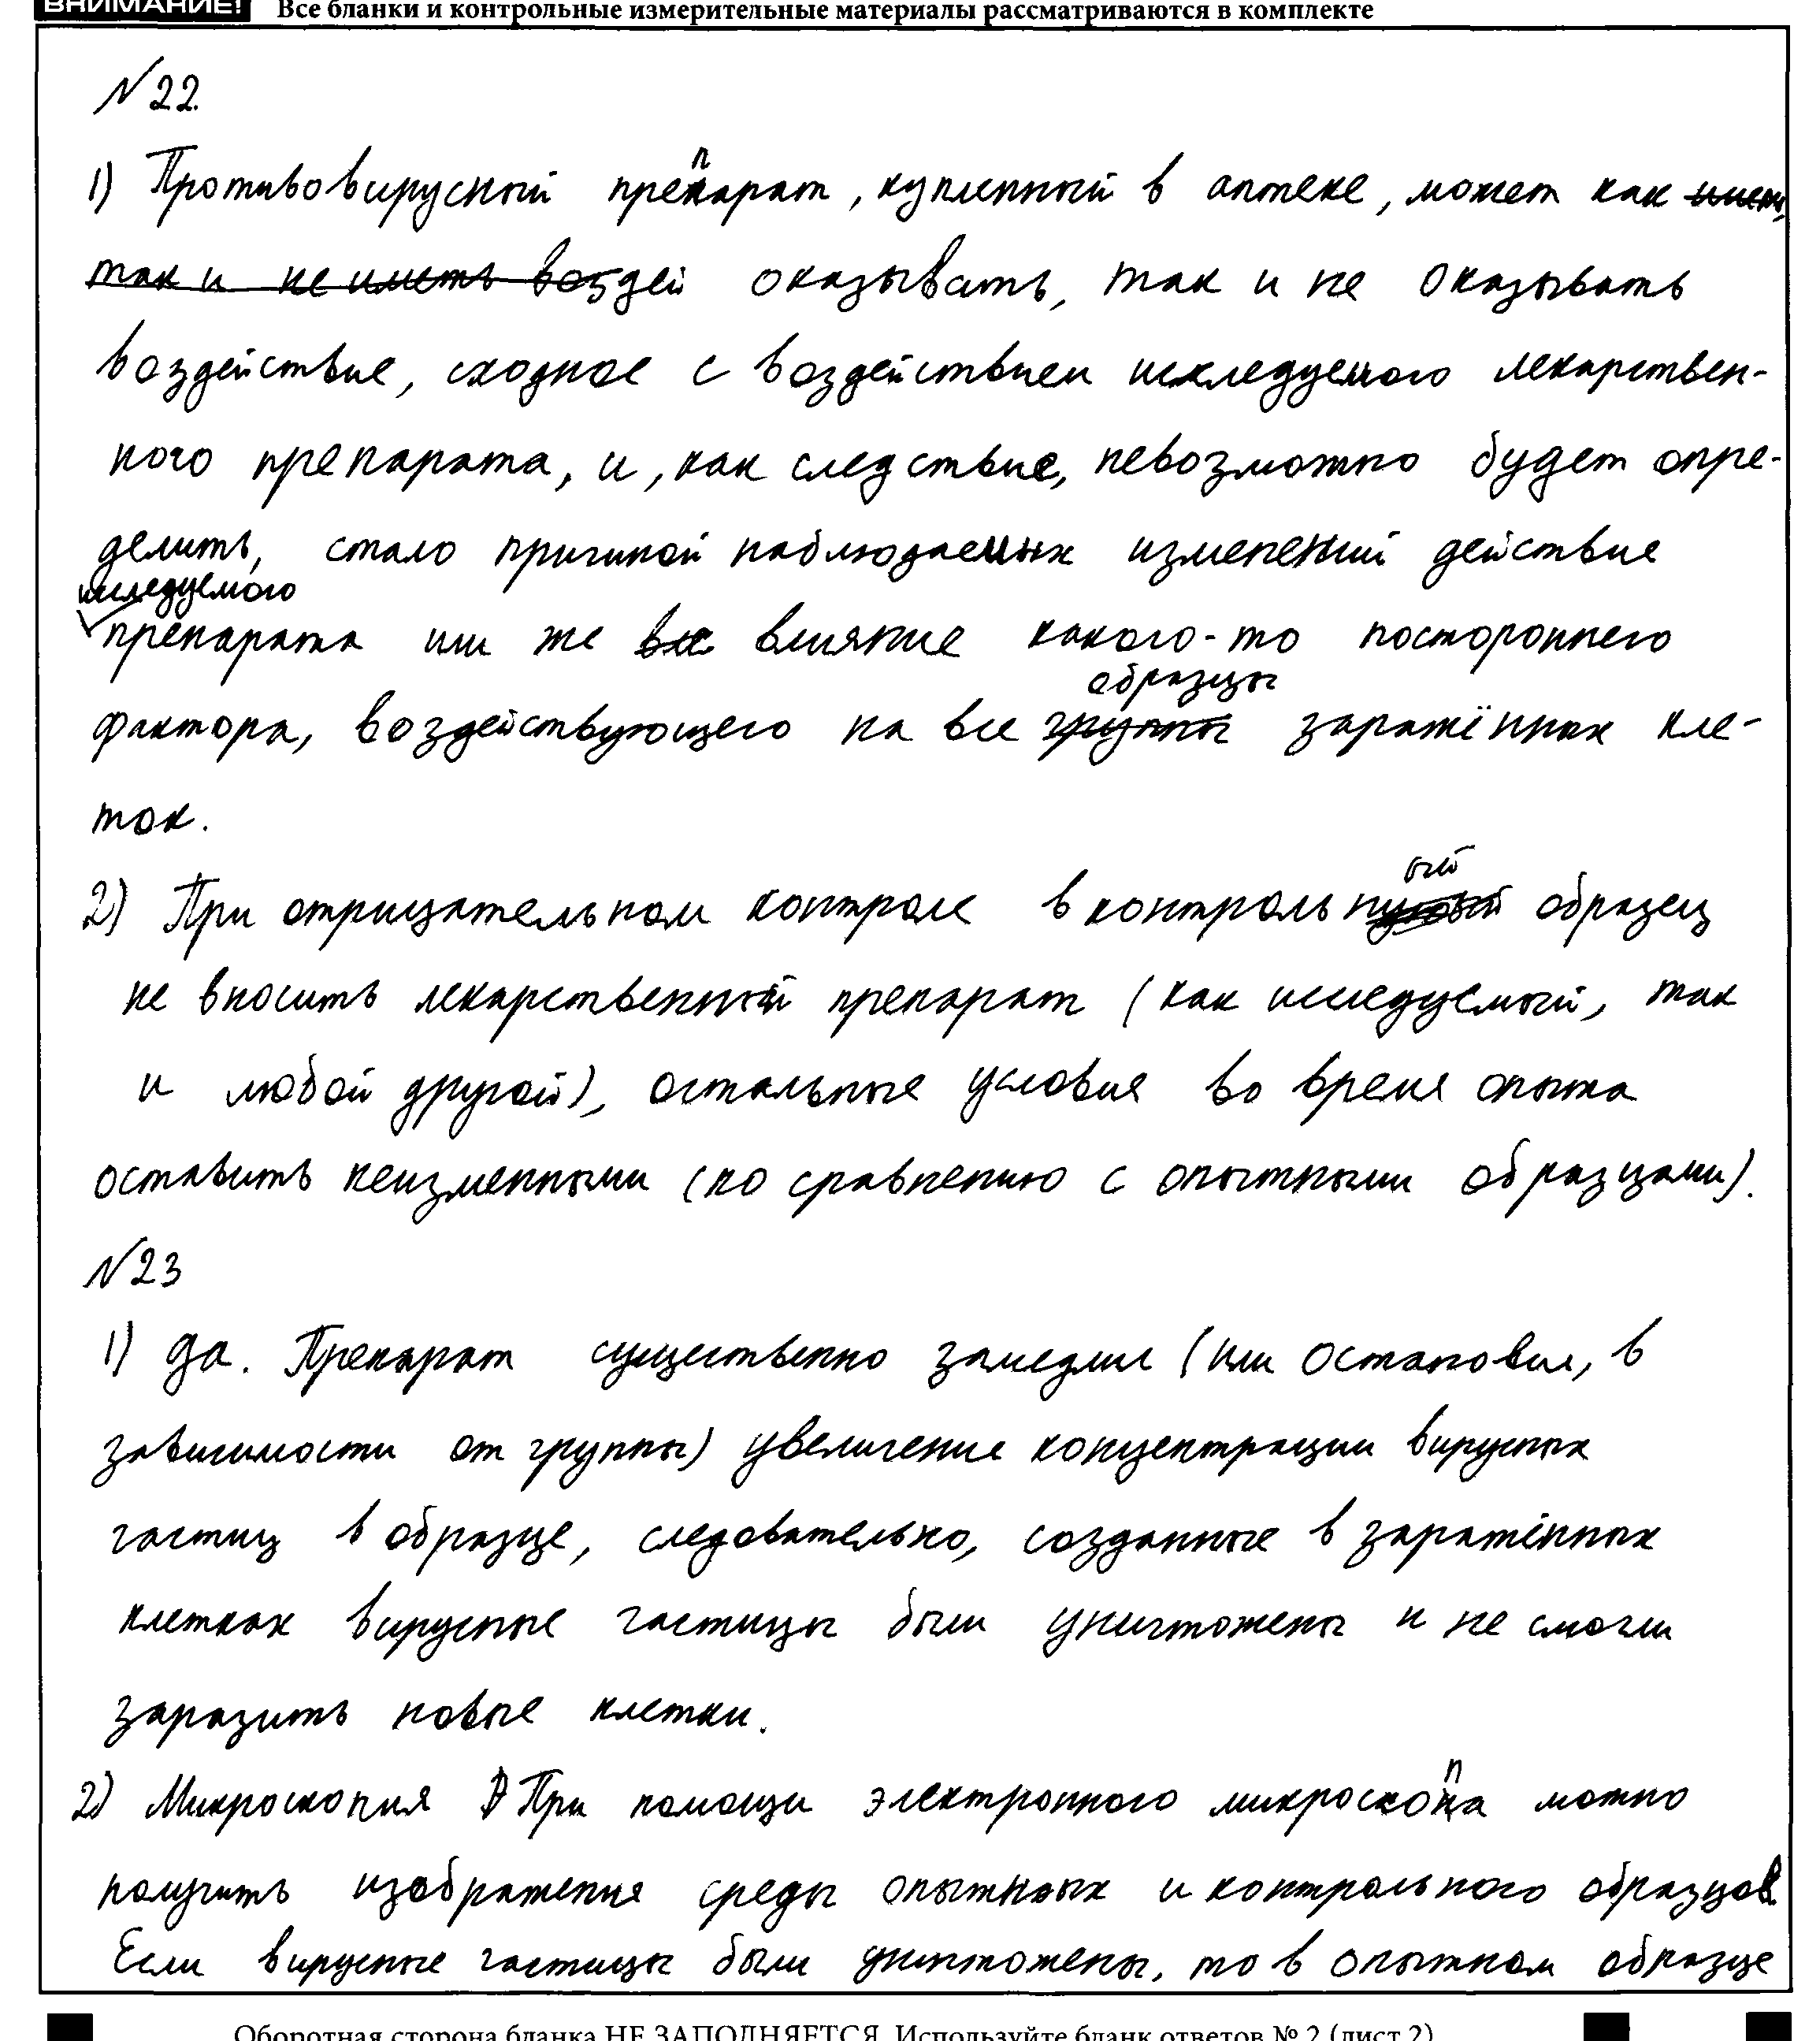 ВНИМАНИЕ! Все бланки и контрольные измерительные материалы рассматриваются в комплекте
№22.
1) Противовирусный препарат, купленный в аптеке, может как иметь,
так и не иметь воздей оказывать, так и не оказывать
воздействие, сходное с воздействием исследуемого лекарствен-
ного препарата, и, как следствие, невозможно будет опре-
делить, стало причиной наблюдаемых изменений действие
исследуемого
препарата или же влияние какого-то постороннего
образцы
фактора, воздействующего на все группы заражённых кле-
ток.
2) При отрицательном контроле в контрольный образец
не вносить лекарственный препарат (как исследуемый, так
и любой другой), остальные условия во время опыта
оставить неизменными (по сравнению с опытными образцами).
№23
1) Да. Препарат существенно замедлил (или остановил, в
зависимости от группы) увеличение концентрации вирусных
частиц в образце, следовательно, созданные в заражённых
клетках вирусные частицы были уничтожены и не смогли
заразить новые клетки.
2) Микроскопия При помощи электронного микроскопа можно
получить изображения среды опытных и контрольного образцов.
Если вирусные частицы были уничтожены, то в опытном образце
Оборотная сторона бланка НЕ ЗАПОЛНЯЕТСЯ. Используйте бланк ответов № 2 (лист 2)